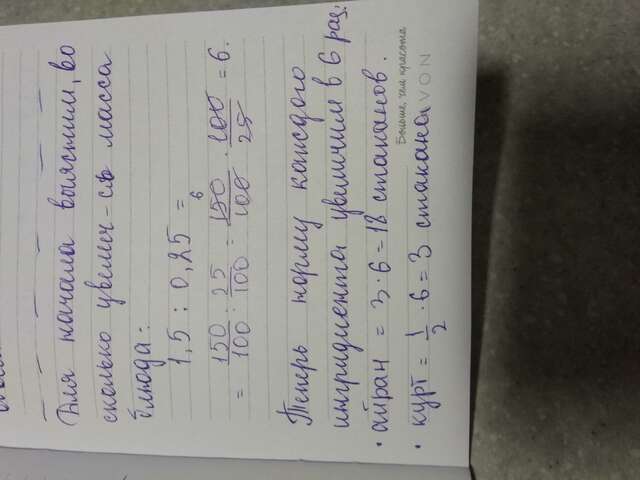 Для начала выясним, во
сколько увелич-сь масса
блюда:
1,5 : 0,25 =
= 150/100 : 25/100 = 150/100 · 100/25 = 6.
6
Теперь норму каждого
ингридиента увеличим в 6 раз:
• айран = 3·6 = 18 стаканов.
• курт = 1/2 · 6 = 3 стакана
Больше, чем красота
AVON